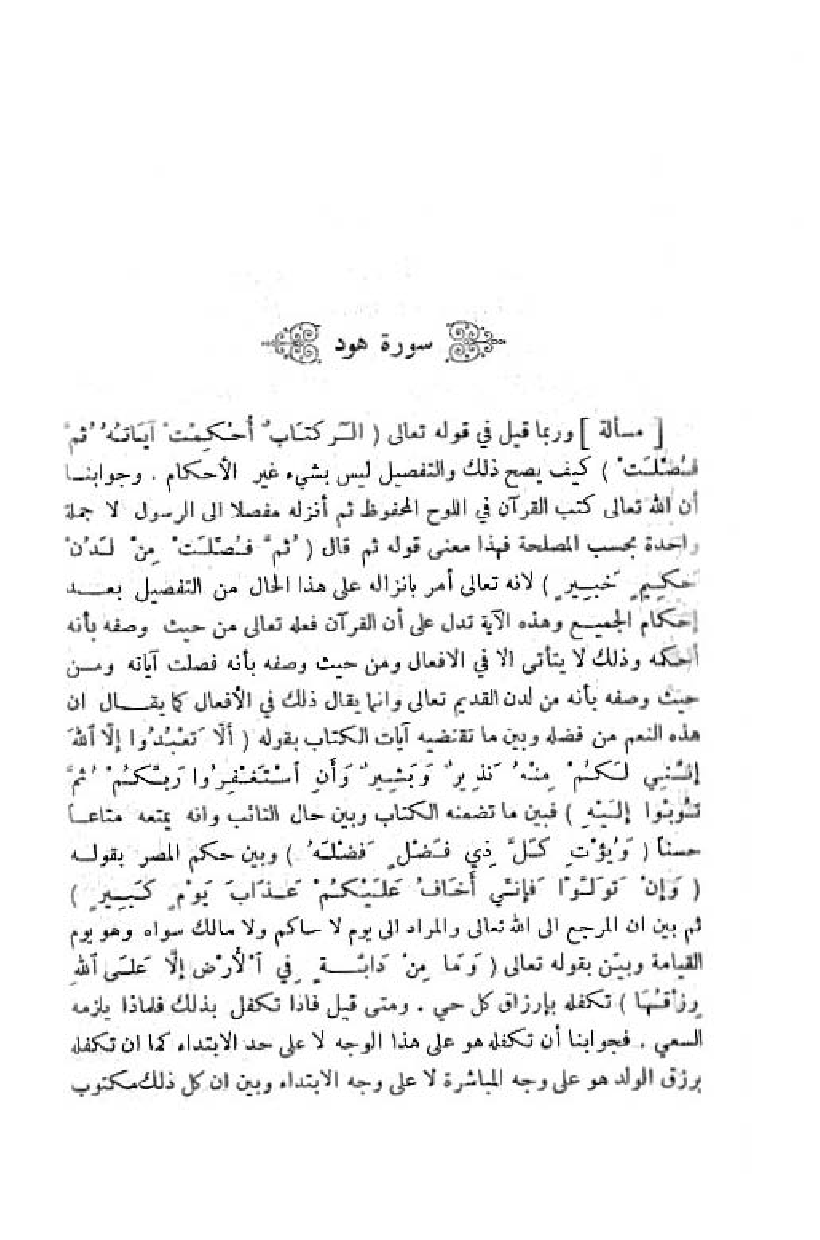 سورة هود
[ مسألة ] وربما قيل في قوله تعالى ( الٓر كتَابٌ أُحْكِمَتْ آيَاتهُ ثُمَّ
فُصِّلَتْ ) كيف يصح ذلك والتفصيل ليس بشيء غير الأحكام . وجوابنا
أن الله تعالى كتب القرآن في اللوح المحفوظ ثم أنزله مفصلا الى الرسول لا جملة
واحدة بحسب المصلحة فهذا معنى قوله ثم قال ( ثُمَّ فُصِّلَتْ مِنْ لَدُنْ
حَكِيمٍ خَبِيرٍ ) لانه تعالى أمر بانزاله على هذا الحال من التفصيل بعد
إحكام الجميع وهذه الآية تدل على أن القرآن فعله تعالى من حيث وصفه بأنه
أحكمه وذلك لا يتأتى الا في الافعال ومن حيث وصفه بأنه فصلت آياته ومن
حيث وصفه بأنه من لدن القديم تعالى وانما يقال ذلك في الأفعال كما يقال ان
هذه النعم من فضله وبين ما تقتضيه آيات الكتاب بقوله ( أَلَّا تَعْبُدُوا إلَّا اللهَ
إنَّنِي لَكُمْ مِنْهُ نَذِيرٌ وَبَشِيرٌ وَأَنِ اسْتَغْفِرُوا رَبَّكُمْ ثُمَّ
تُوبُوا إلَيْهِ ) فبين ما تضمنه الكتاب وبين حال التائب وانه يمتعه متاعاً
حسناً ( وَيُؤْتِ كُلَّ ذِي فَضْلٍ فَضْلَهُ ) وبين حكم المصر بقوله
( وَإنْ تَوَلَّوْا فَإنِّي أَخَافُ عَلَيْكُمْ عَذَابَ يَوْمٍ كَبِيرٍ )
ثم بين ان المرجع الى الله تعالى والمراد الى يوم لا حاكم ولا مالك سواه وهو يوم
القيامة وبيّن بقوله تعالى ( وَمَا مِنْ دَابَّةٍ فِي الْأَرْضِ إلَّا عَلَى اللهِ
رِزْقُهَا ) تكفله بإرزاق كل حي . ومتى قيل فاذا تكفل بذلك فلماذا يلزمه
السعي . فجوابنا أن تكفله هو على هذا الوجه لا على حد الابتداء كما ان تكفله
برزق الولد هو على وجه المباشرة لا على وجه الابتداء وبين ان كل ذلك مكتوب